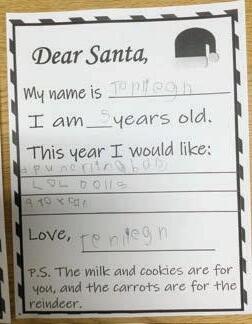 Dear Santa,
My name is
I am 5 years old.
This year I would like:
LOL Dolls
Love,
P.S. The milk and cookies are for
you, and the carrots are for the
reindeer.